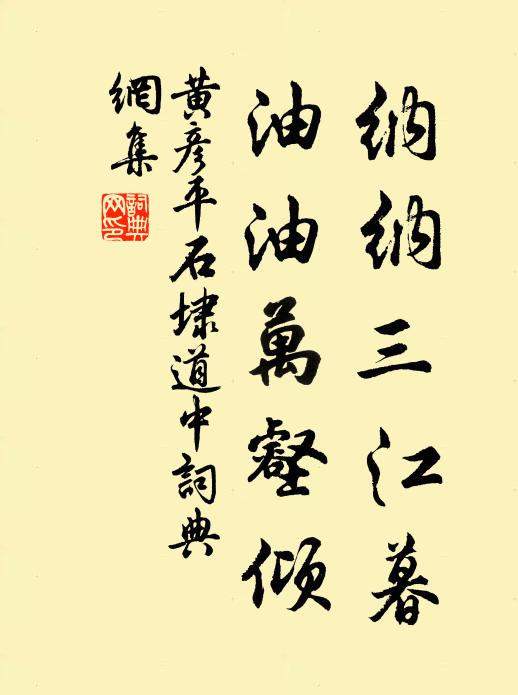 納納三江暮
油油萬壑傾
黃彥平石埭道中詞典
網集
詞典網印